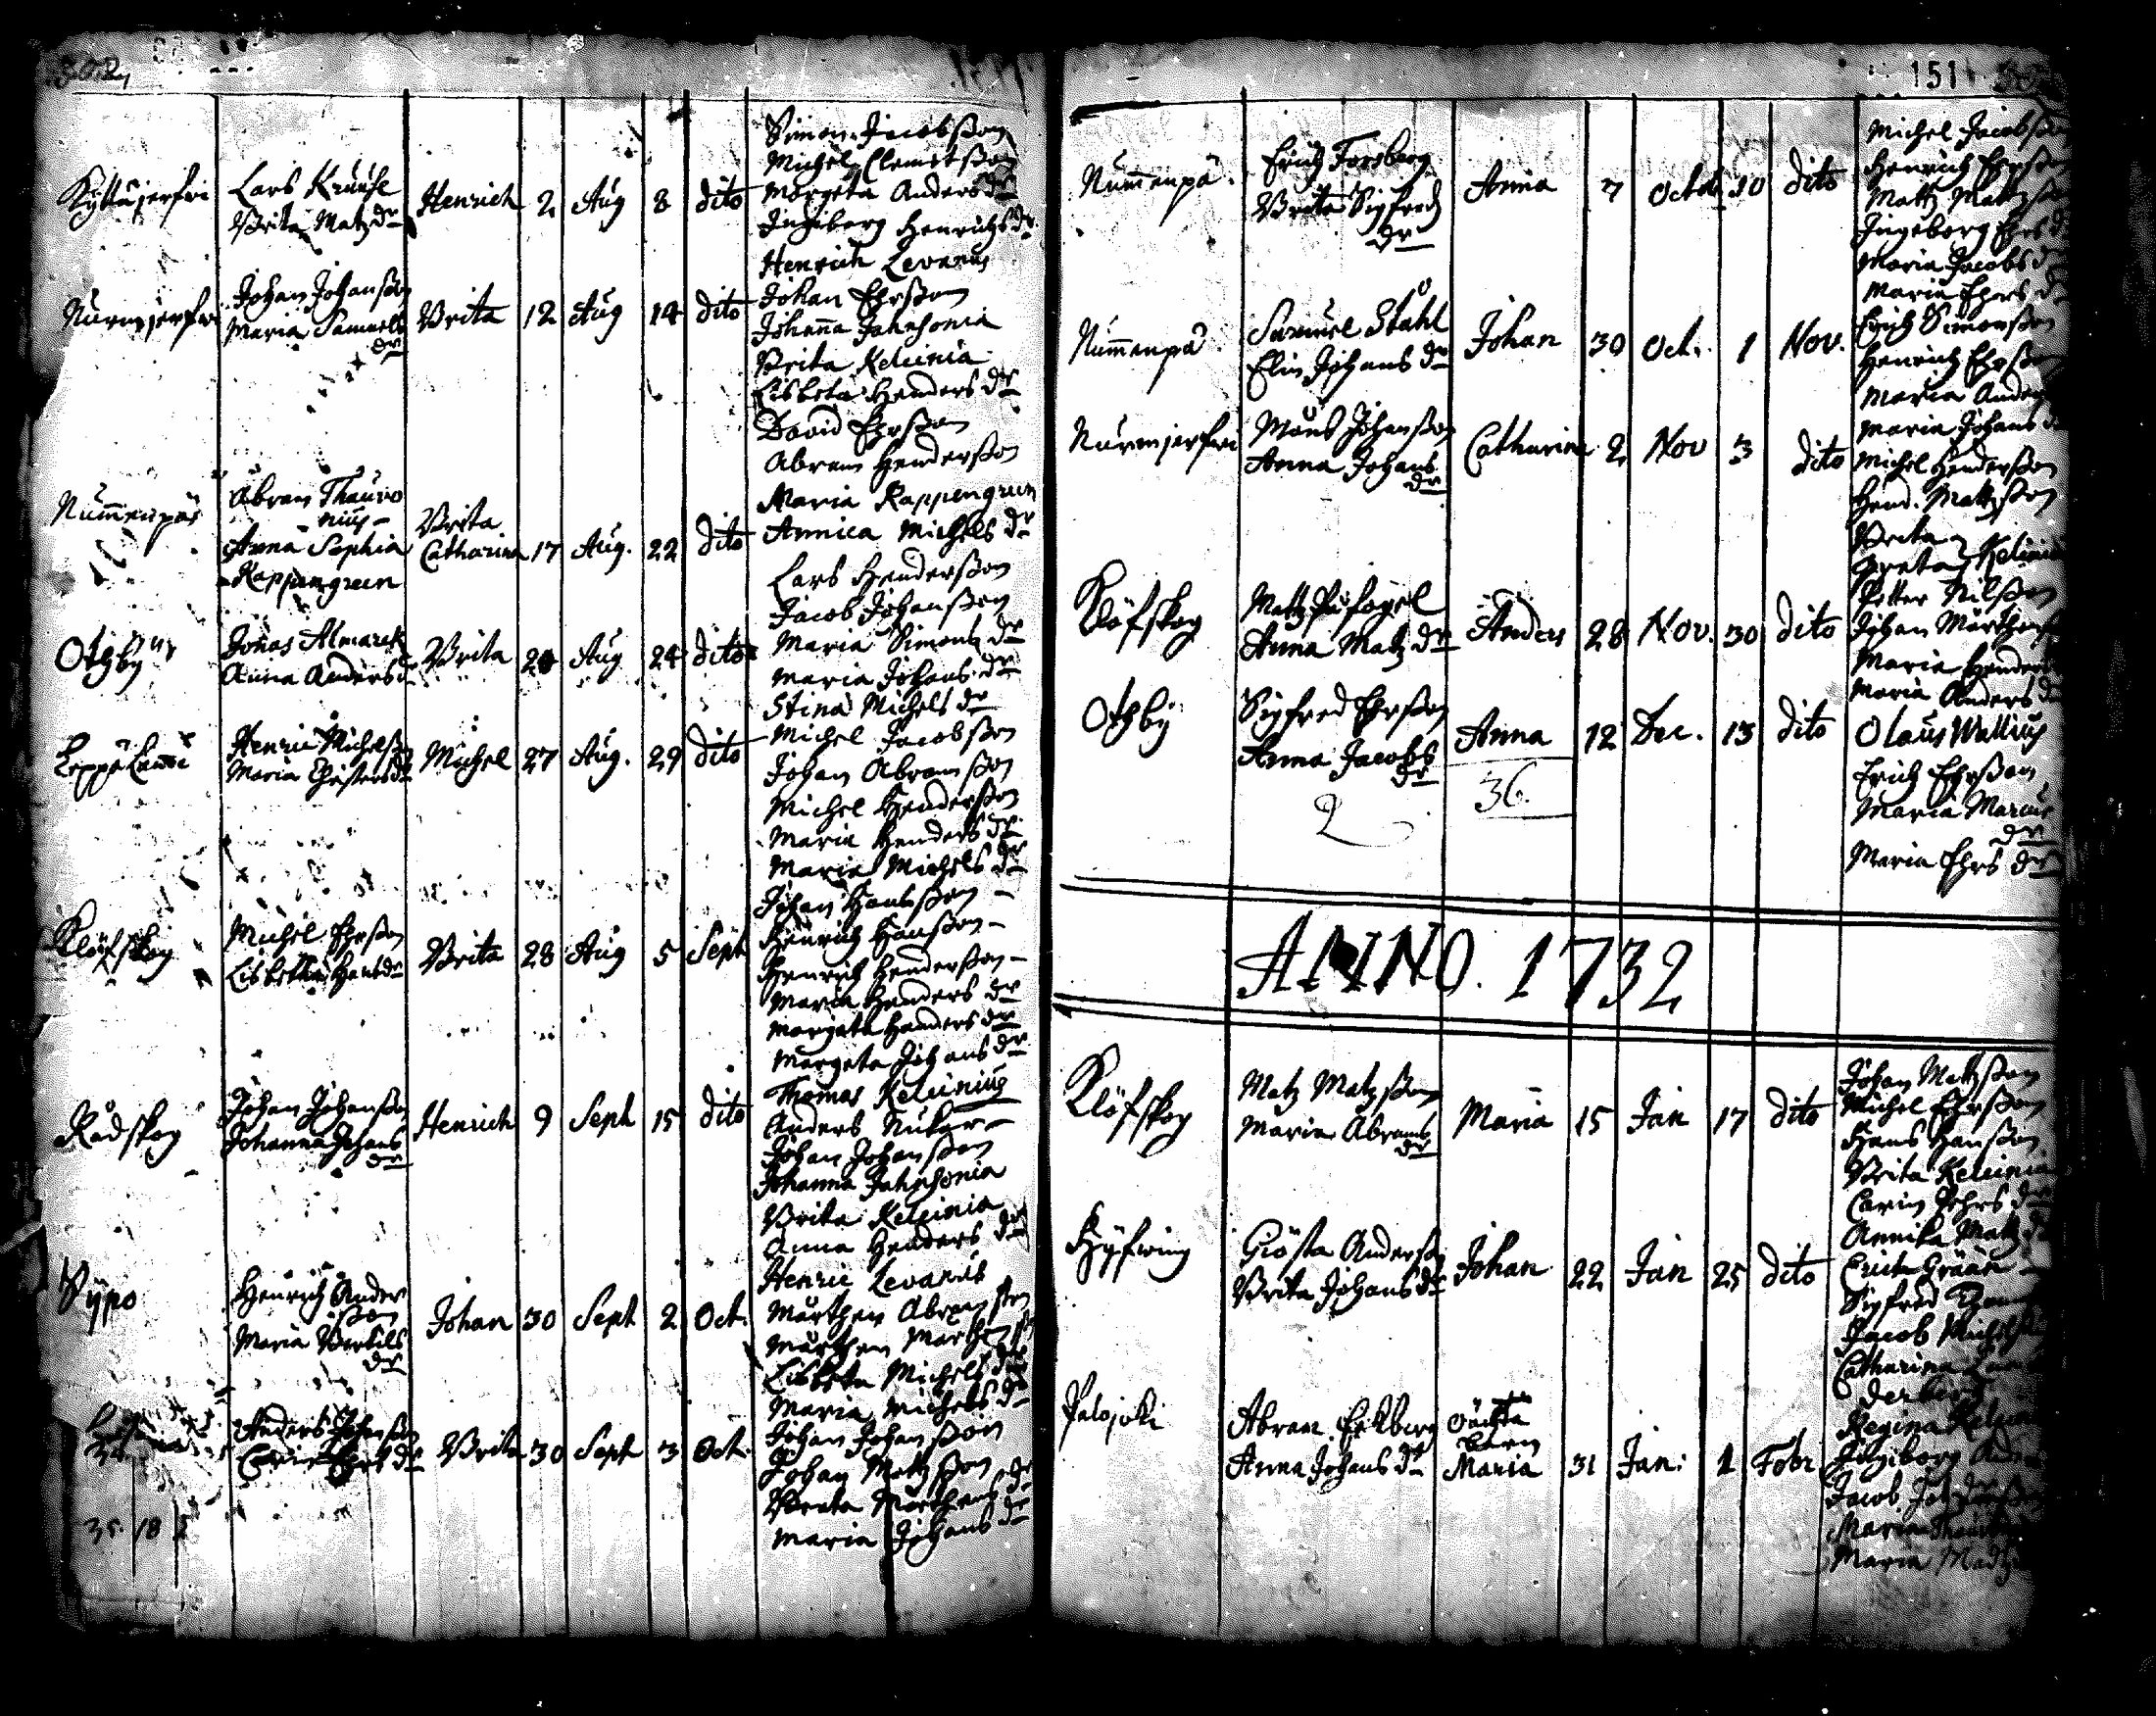 302
Kyttäjerfvi
Lars Kruuse
Brita Matz dr
Henrich 2 Aug 8 dito
Simon Jacobsson
Michel Clemetsson
Margeta Anders dr
Ingeborg Henrichs dr
Nurmjerfvi
Johan Johansson
Maria Samuels
dr
Brita 12 Aug 14 dito
Henrich Levanus
Johan Ehrsson
Johanna Jahnsonia
Brita Kelcinia
Lisbeta Henders dr
Nummenpää
Abram Thauvo
nius
Anna Sophia
Kappengreen
Brita
Catharina 17 Aug. 22 dito
David Ehrsson
Abram Hendersson
Maria Kappengreen
Annica Michels dr
Othby
Jonas Almarck
Anna Anders dr
Brita 20 Aug 24 dito
Lars Hendersson
Jacob Johansson
Maria Simons dr
Maria Johans dr
Stina Michels dr
Leppälambi
Henric Michelsson
Maria Christers dr
Michel 27 Aug. 29 dito
Michel Jacobsson
Johan Abramsson
Michel Hendersson
Maria Henders dr
Maria Michels dr
Klöfskog
Michel Ehrsson
Lisbetha Hans dr
Brita 28 Aug 5 Sept
Johan Hansson
Henrich Hansson
Henrich Hendersson
Maria Henders dr
Margeta Henders dr
Margeta Johans dr
Rådskog
Johan Johansson
Johanna Johans
dr
Henrich 9 Sept 15 dito
Thomas Kelcinius
Anders
Johan Johansson
Johanna Jahnsonia
Brita Kelcinia
Anna Henders dr
Sypo
Henrich Anders
sson
Maria Bertils
dr
Johan 30 Sept 2 Oct.
Henric Levanus
Mårthen Abramsson
Mårthen Mårthensson
Lisbeta Michels dr
Maria Michels dr
Anders Johansson
Carin Ehrs dr
Brita 30 Sept 3 Oct.
Johan Johansson
Johan Matzsson
Brita Mårthens dr
Maria Johans dr
35. 18
151
Nummenpä.
Erich Forsberg
Brita Sigfreds
dr
Anna 7 Octob 10 dito
Michel Jacobsson
Henrich Ehrsson
Mattz Mattzson
Ingeborg Ehrs dr
Maria Jacobs dr
Maria Ehrs dr
Nummenpä.
Samuel Ståhl
Elin Johans dr
Johan 30 Oct. 1 Nov.
Erich Simonsson
Henrich Ehrsson
Maria Anders
Maria Johans dr
Nurmjerfvi
Måns Johansson
Anna Johans
dr
Catharina 2 Nov 3 dito
Michel Hendersson
Hend. Mattzson
Brita
Greta Kelcinia
Klöfskog
Anna Matz dr
Anders 28 Nov. 30 dito
Petter Nilsson
Johan Mårthens
Maria Henders
Maria Anders dr
Othby
Sigfred Ehrsson
Anna Jacobs
dr
Anna 12 Dec. 13 dito
Olaus Wallius
Erich Ehrsson
Maria Marcus
dr
Maria Ehrs dr
2
36.
ANNO. 1732
Klöfskog
Matz Matzsson
Maria Abrams
dr
Maria 15 Jan 17 dito
Johan Mattzsson
Michel Ehrsson
Hans Hansson
Brita Kelcinia
Carin Ehrs dr
Annika Matz dr
Hyfwing
Giösta Andersson
Brita Johans dr
Johan 22 Jan 25 dito
Erich Grään
Sigfred
Jacob Michels
Catharina
derberg
Regina Kelcinia
Palojoki
Abram Eekberg
Anna Johans dr
oächta
barn
Maria 31 Jan: 1 Febr
Ingeborg Anders
Jacob Johansson
Maria
Maria Matz